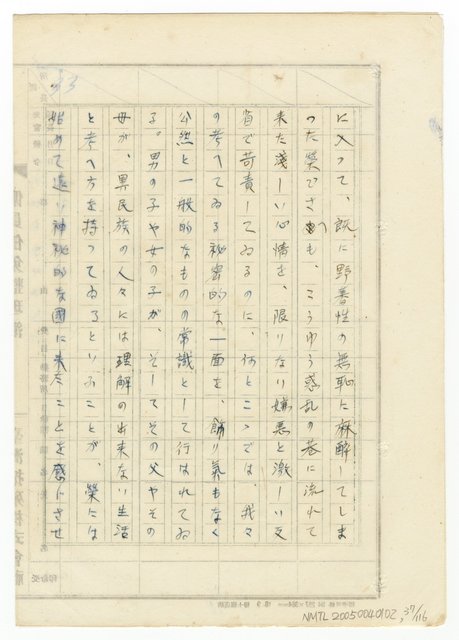 33
に入って、既に野蕃性の無恥に麻酔してしま
った榮でさへも、こうゆう惑乱の巷に流れて
来た淺しい心情を、限りない嫌悪と激しい反
省で苛責してゐるのに、何とこゝでは、我々
の考へてゐる秘密的な一面を、飾り気もなく
公然と一般的なものの常識として行はれてゐ
る。男の子や女の子が、そしてその父やその
母が、異民族の人々には理解の出来ない生活
と考へ方を持ってゐるといふことが、榮には
始めて遠い神秘的な國に来たことを感じさせ
NMTL 20050040102, 37/116